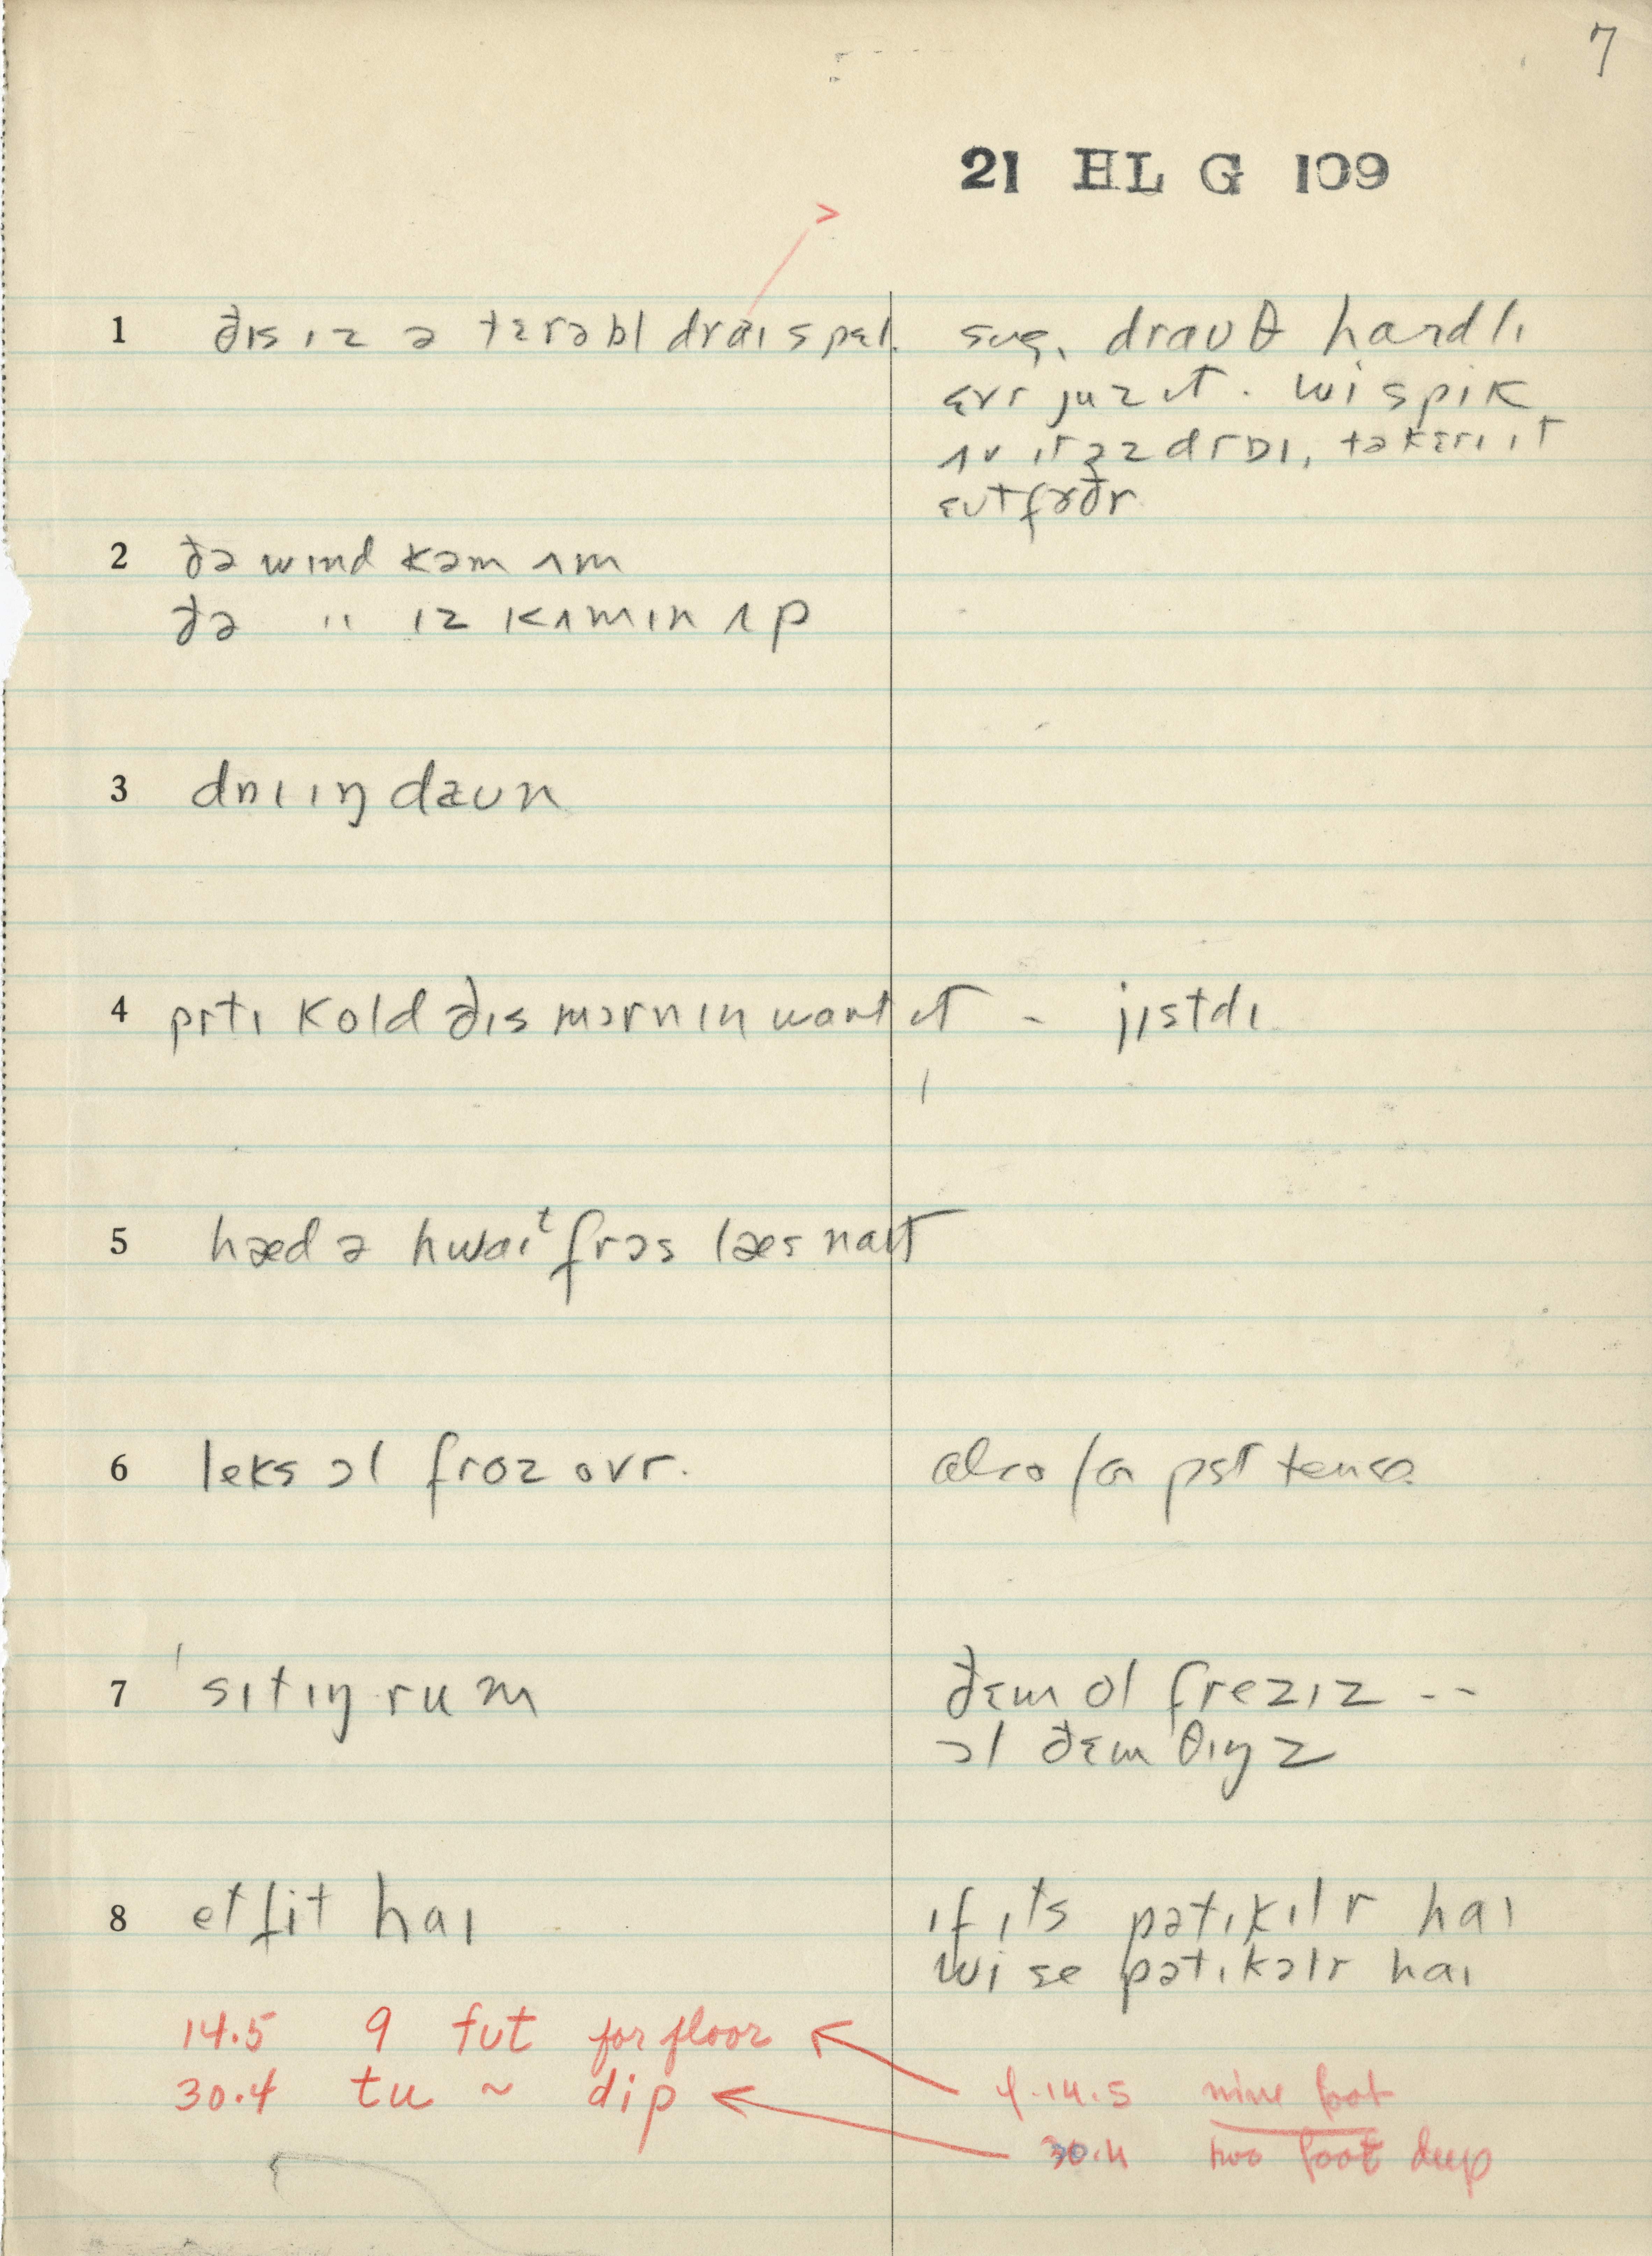 7
21 HL G 109
1 ðɪs ɪz ə tɛrəbl draɪ spɛl. sug. draʊθ hardlɪ
ɛvr juz ɪt. wi spik
ʌv ɪt əz drɒɪ, təkɛrɪ ɪt
ɛʊtfɚðr
2 ðə wɪnd kəm ʌm
ðə " ɪz kʌmɪn ʌp
3 dɒɪɪŋ dæʊn
4 prtɪ kold ðɪs mɔrnɪn wantɪt - jɪstdɪ
5 hæd ə hwaɪt frɔs læs naɪt
6 leks ɔl froz ovr. also for pst tense
7 'sɪtɪŋ rum ðɛm ol freziz --
ɔl ðɛm θɪŋz
8 et fit haɪ ɪf ɪts pətɪkɪlr haɪ
wi se pətɪkəlr haɪ
14.5 9 fʊt for floor
30.4 tu ~ dip 14.5 nine foot
30.4 two foot deep